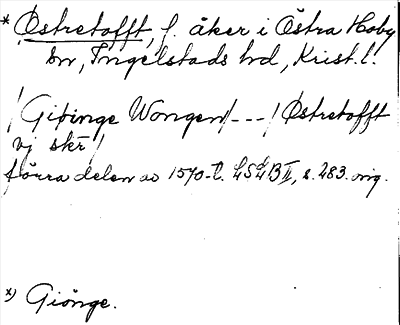 * Östretofft, f. åker i Östra Hoby
sn, Ingelstads hd, Krist. l.
/Giöinge Wongen/---/Östretofft
vj skr/
förra delen av 1570-t. LSLB II, s. 283. orig.
x) Giönge.